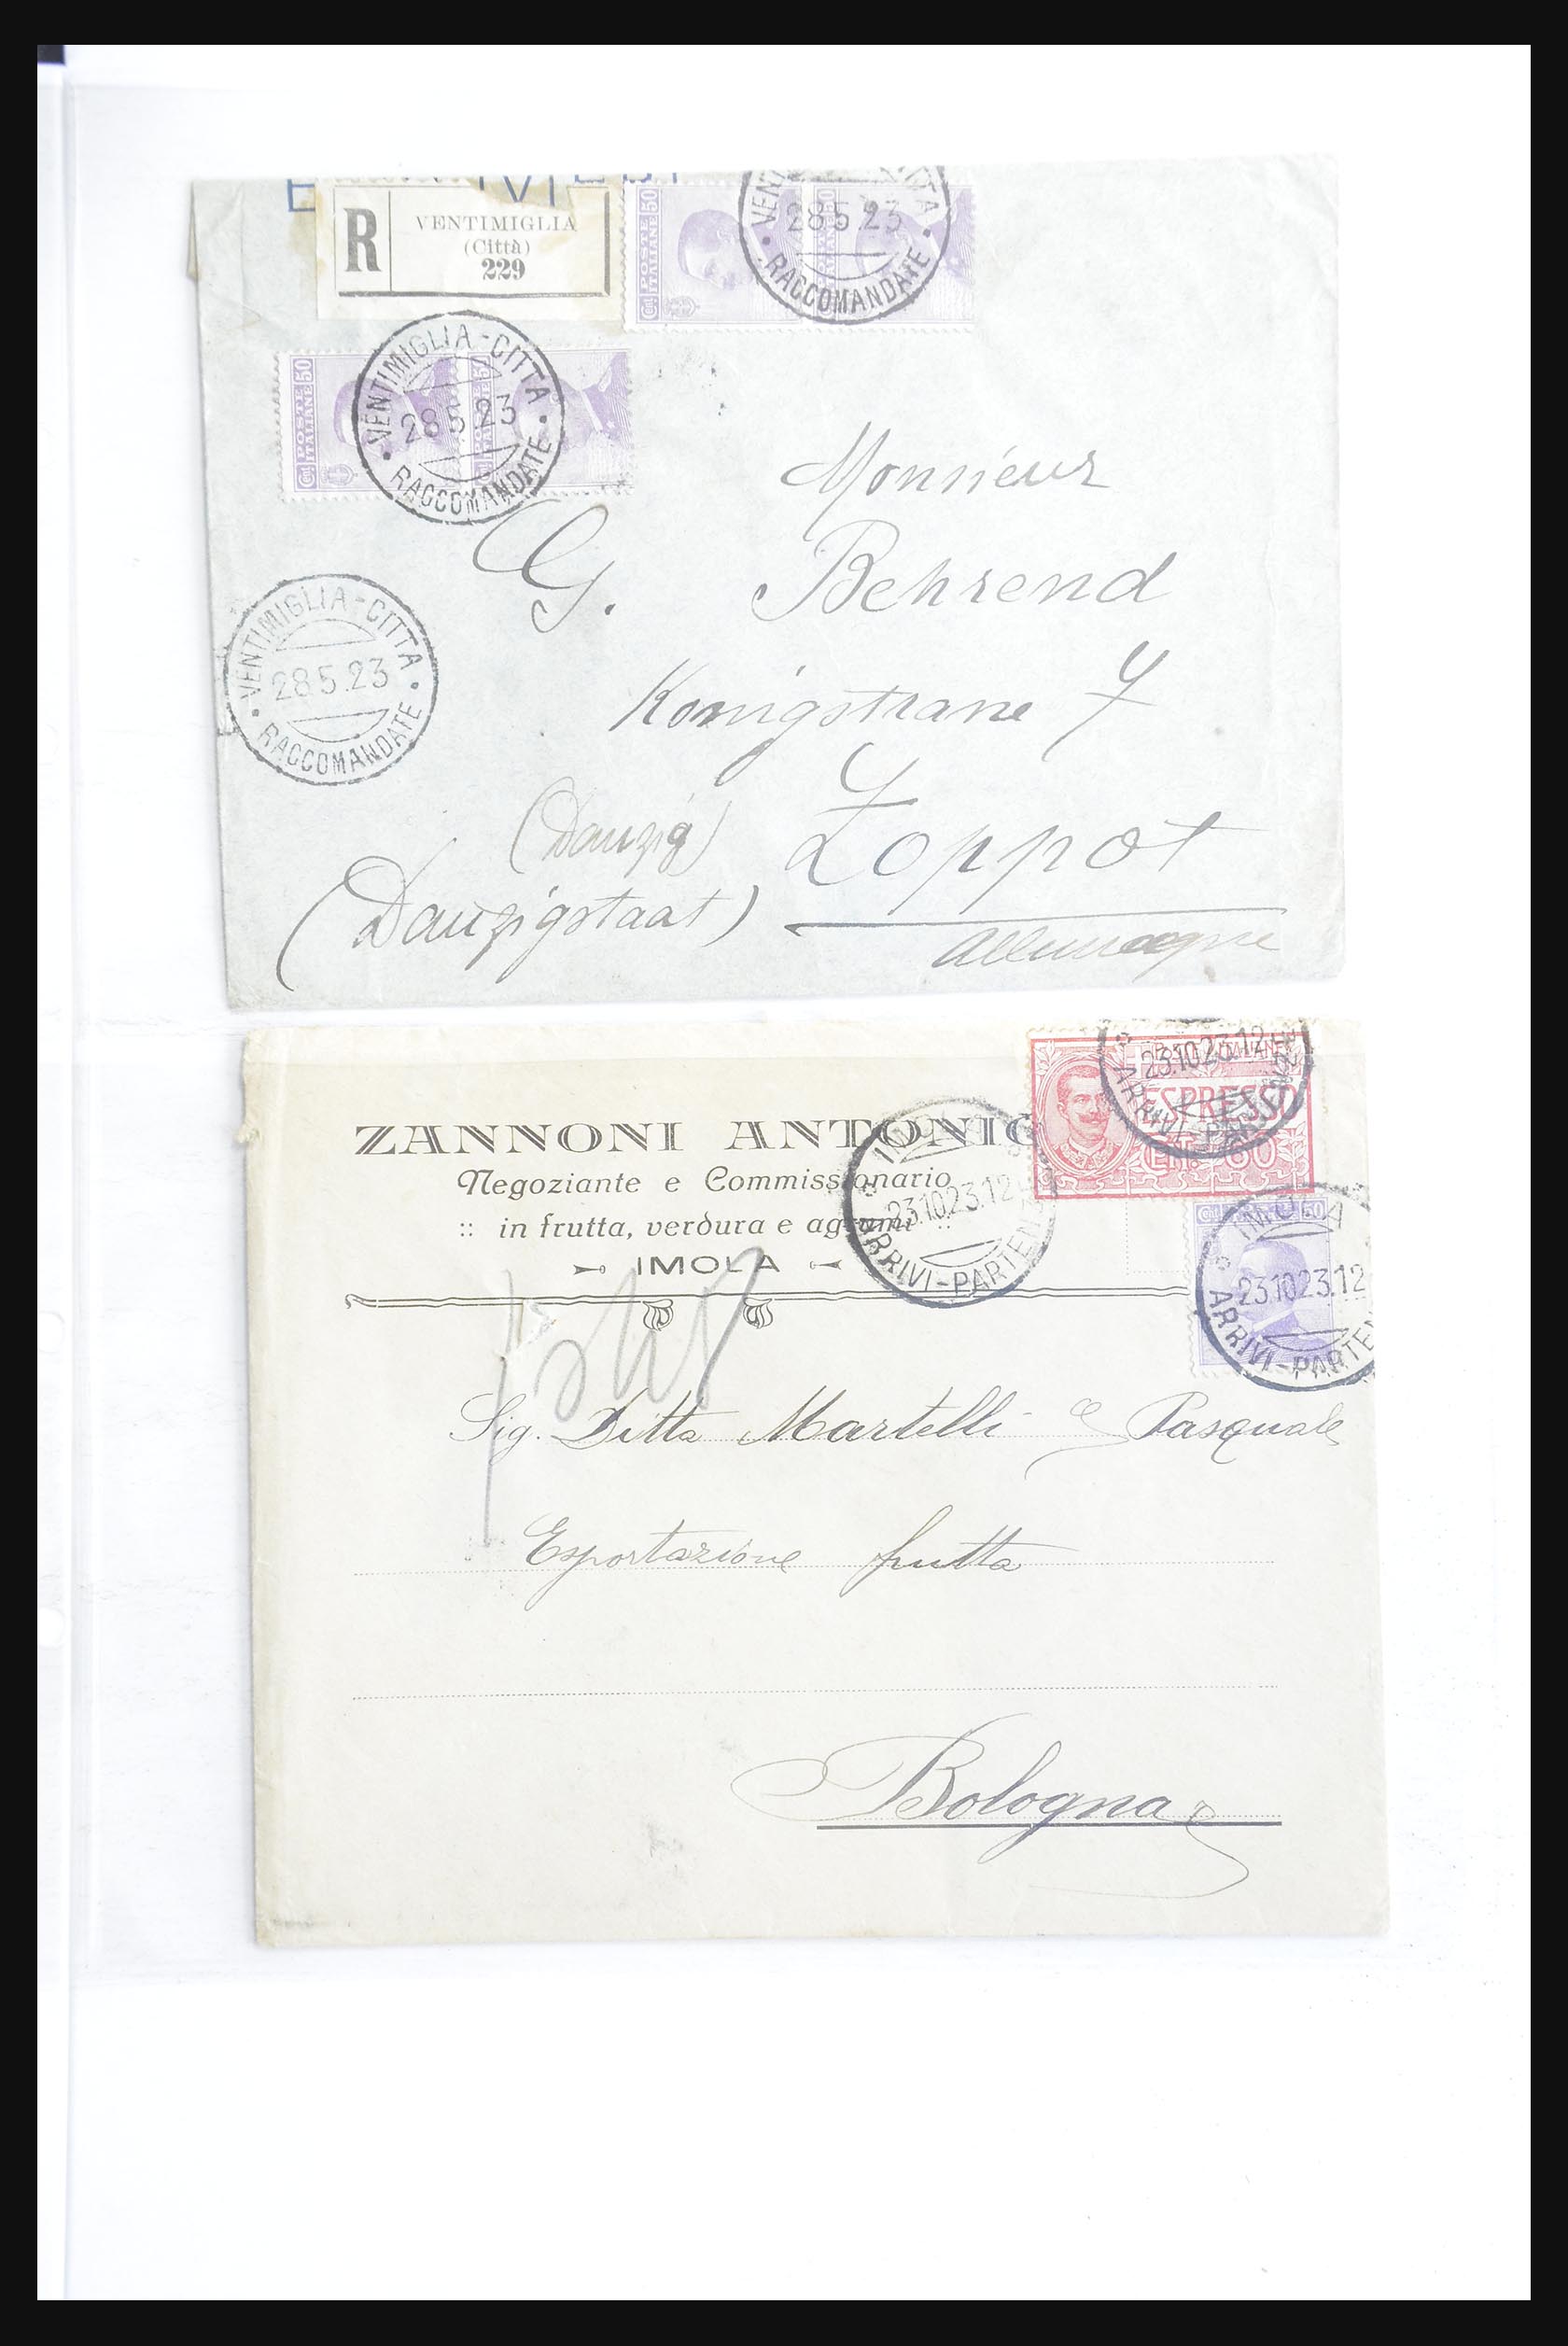 R
VENTIMIGLIA
(Città)
229
POSTE ITALIANE 50
VENTIMIGLIA-CITTA
28.5.23
RACCOMANDATE
POSTE ITALIANE Cent. 50
POSTE ITALIANE 50
VENTIMIGLIA-CITTA
28.5.23
RACCOMANDATE
VENTIMIGLIA-CITTA
28.5.23
RACCOMANDATE
Monsieur
G. Behrend
Konigstrasse 7
(Danzig) Zoppot
(Danzigstaat)
Allemagne
ESPRESSO
CENT. 60
23.10.23.12
ARRIVI-PARTENZE
ZANNONI ANTONIO
Negoziante e Commissionario
:: in frutta, verdura e agrumi ::
IMOLA
23.10.23.12
ARRIVI-PARTENZE
50
IMOLA
23.10.23.12
ARRIVI-PARTEN
Sig. Ditta Martelli e Pasquale
Esportazione frutta
Bologna